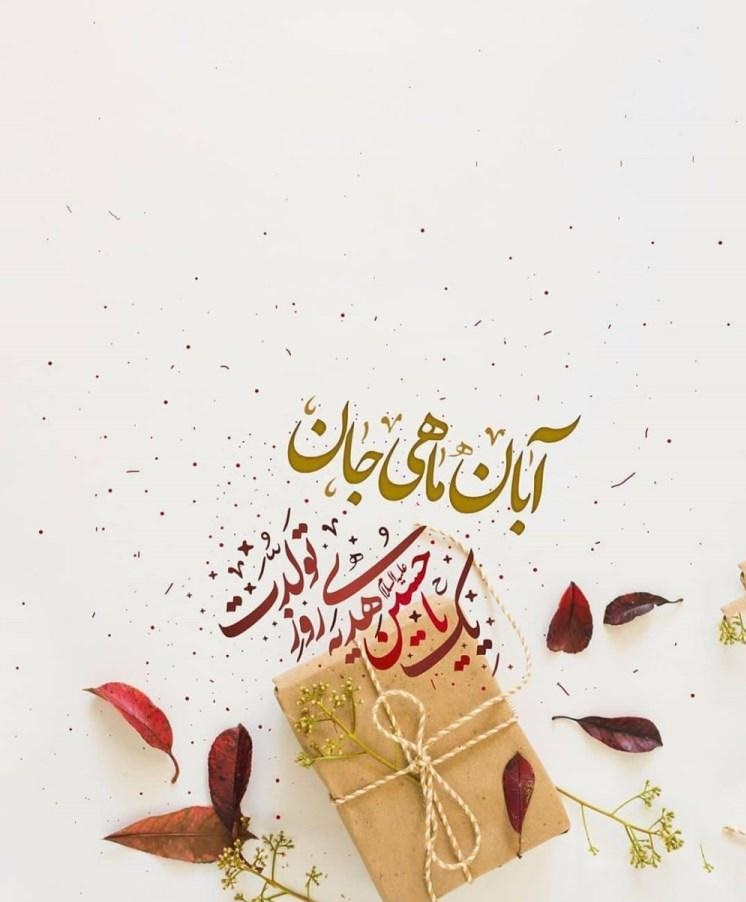 آبان ماهی جان
یک یا حسین علیه‌السلام هدیه‌ی روز تولدت